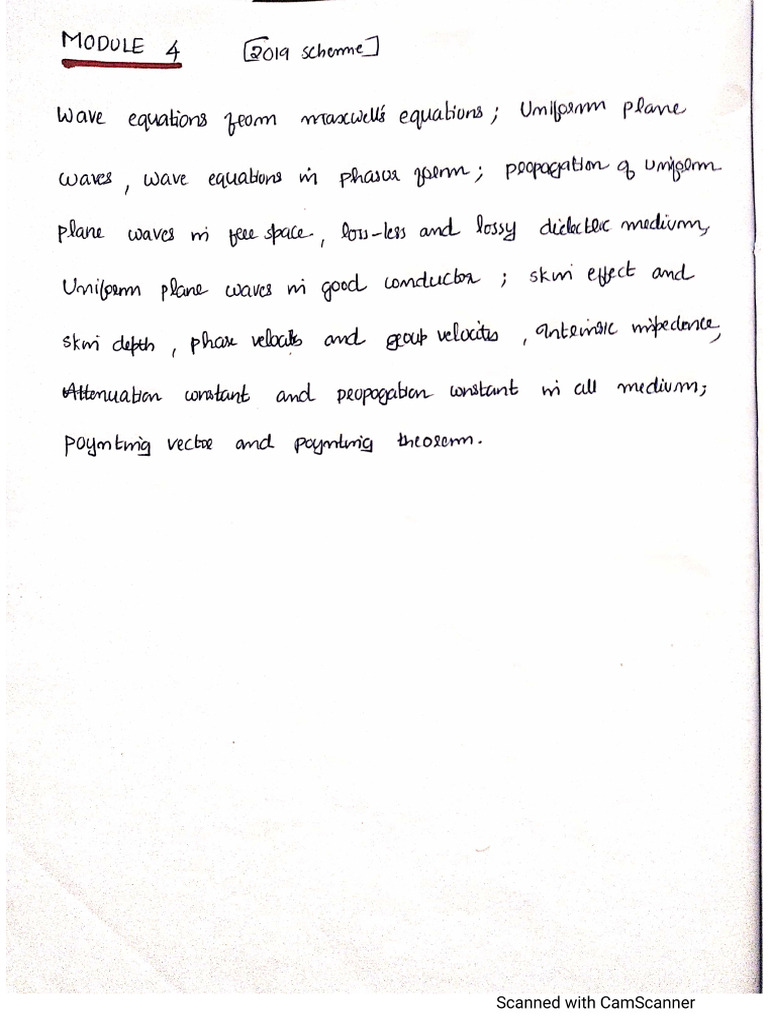 MODULE 4 [2019 scheme]
Wave equations from maxwell's equations; Uniform plane
waves, wave equations in phasor form; propagation of uniform
plane waves in free space, loss-less and lossy dielectric medium,
Uniform plane waves in good conductor; skin effect and
skin depth, phase velocity and group velocity, intrinsic impedence,
Attenuation constant and propogation constant in all medium;
poynting vector and poynting theorem.
Scanned with CamScanner